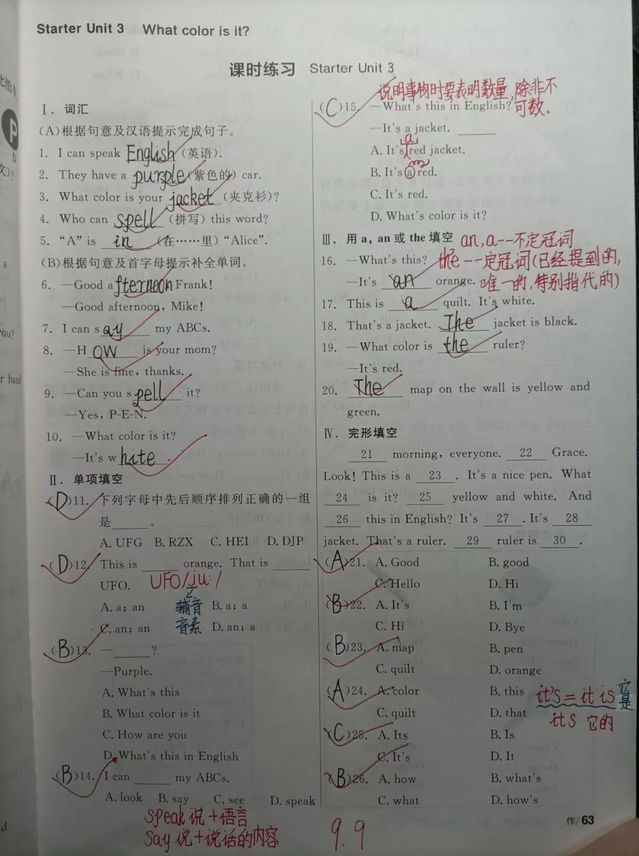 Starter Unit 3 What color is it?
课时练习 Starter Unit 3
Ⅰ. 词汇
(A)根据句意及汉语提示完成句子。
1. I can speak English (英语).
2. They have a purple (紫色的) car.
3. What color is your jacket (夹克衫)?
4. Who can spell (拼写) this word?
5. “A” is in (在……里) “Alice”.
(B)根据句意及首字母提示补全单词。
6. —Good afternoon, Frank!
—Good afternoon, Mike!
7. I can say my ABCs.
8. —How is your mom?
—She is fine, thanks.
9. —Can you spell it?
—Yes, P-E-N.
10. —What color is it?
—It's white.
Ⅱ. 单项填空
(D)11. 下列字母中先后顺序排列正确的一组
是______.
A. UFG B. RZX C. HEI D. DJP
(D)12. This is ______ orange. That is ______
UFO. UFO/ju:/
A. a; an 辅音 B. a; a
C. an; an 音素 D. an; a
(B)13. —______?
—Purple.
A. What's this
B. What color is it
C. How are you
D. What's this in English
(B)14. I can ______ my ABCs.
A. look B. say C. see D. speak
speak 说+语言
say 说+说话的内容
9.9
说明事物时要表明数量,除非不
可数。
(C)15. —What's this in English?
—It's a jacket. ______
a
A. It's red jacket.
B. It's a red.
C. It's red.
D. What's color is it?
Ⅲ. 用 a, an 或 the 填空 an, a--不定冠词
the --定冠词(已经提到的,
16. —What's this?
—It's an orange. 唯一的,特别指代的)
17. This is a quilt. It's white.
18. That's a jacket. The jacket is black.
19. —What color is the ruler?
—It's red.
20. The map on the wall is yellow and
green.
Ⅳ. 完形填空
21 morning, everyone. 22 Grace.
Look! This is a 23 . It's a nice pen. What
24 is it? 25 yellow and white. And
26 this in English? It's 27 . It's 28
jacket. That's a ruler. 29 ruler is 30 .
(A)21. A. Good B. good
C. Hello D. Hi
(B)22. A. It's B. I'm
C. Hi D. Bye
(B)23. A. map B. pen
C. quilt D. orange
(A)24. A. color B. this
C. quilt D. that
it's = it is 它是
its 它的
(C)25. A. Its B. Is
C. It's D. It
(B)26. A. how B. what's
C. what D. how's
作/63